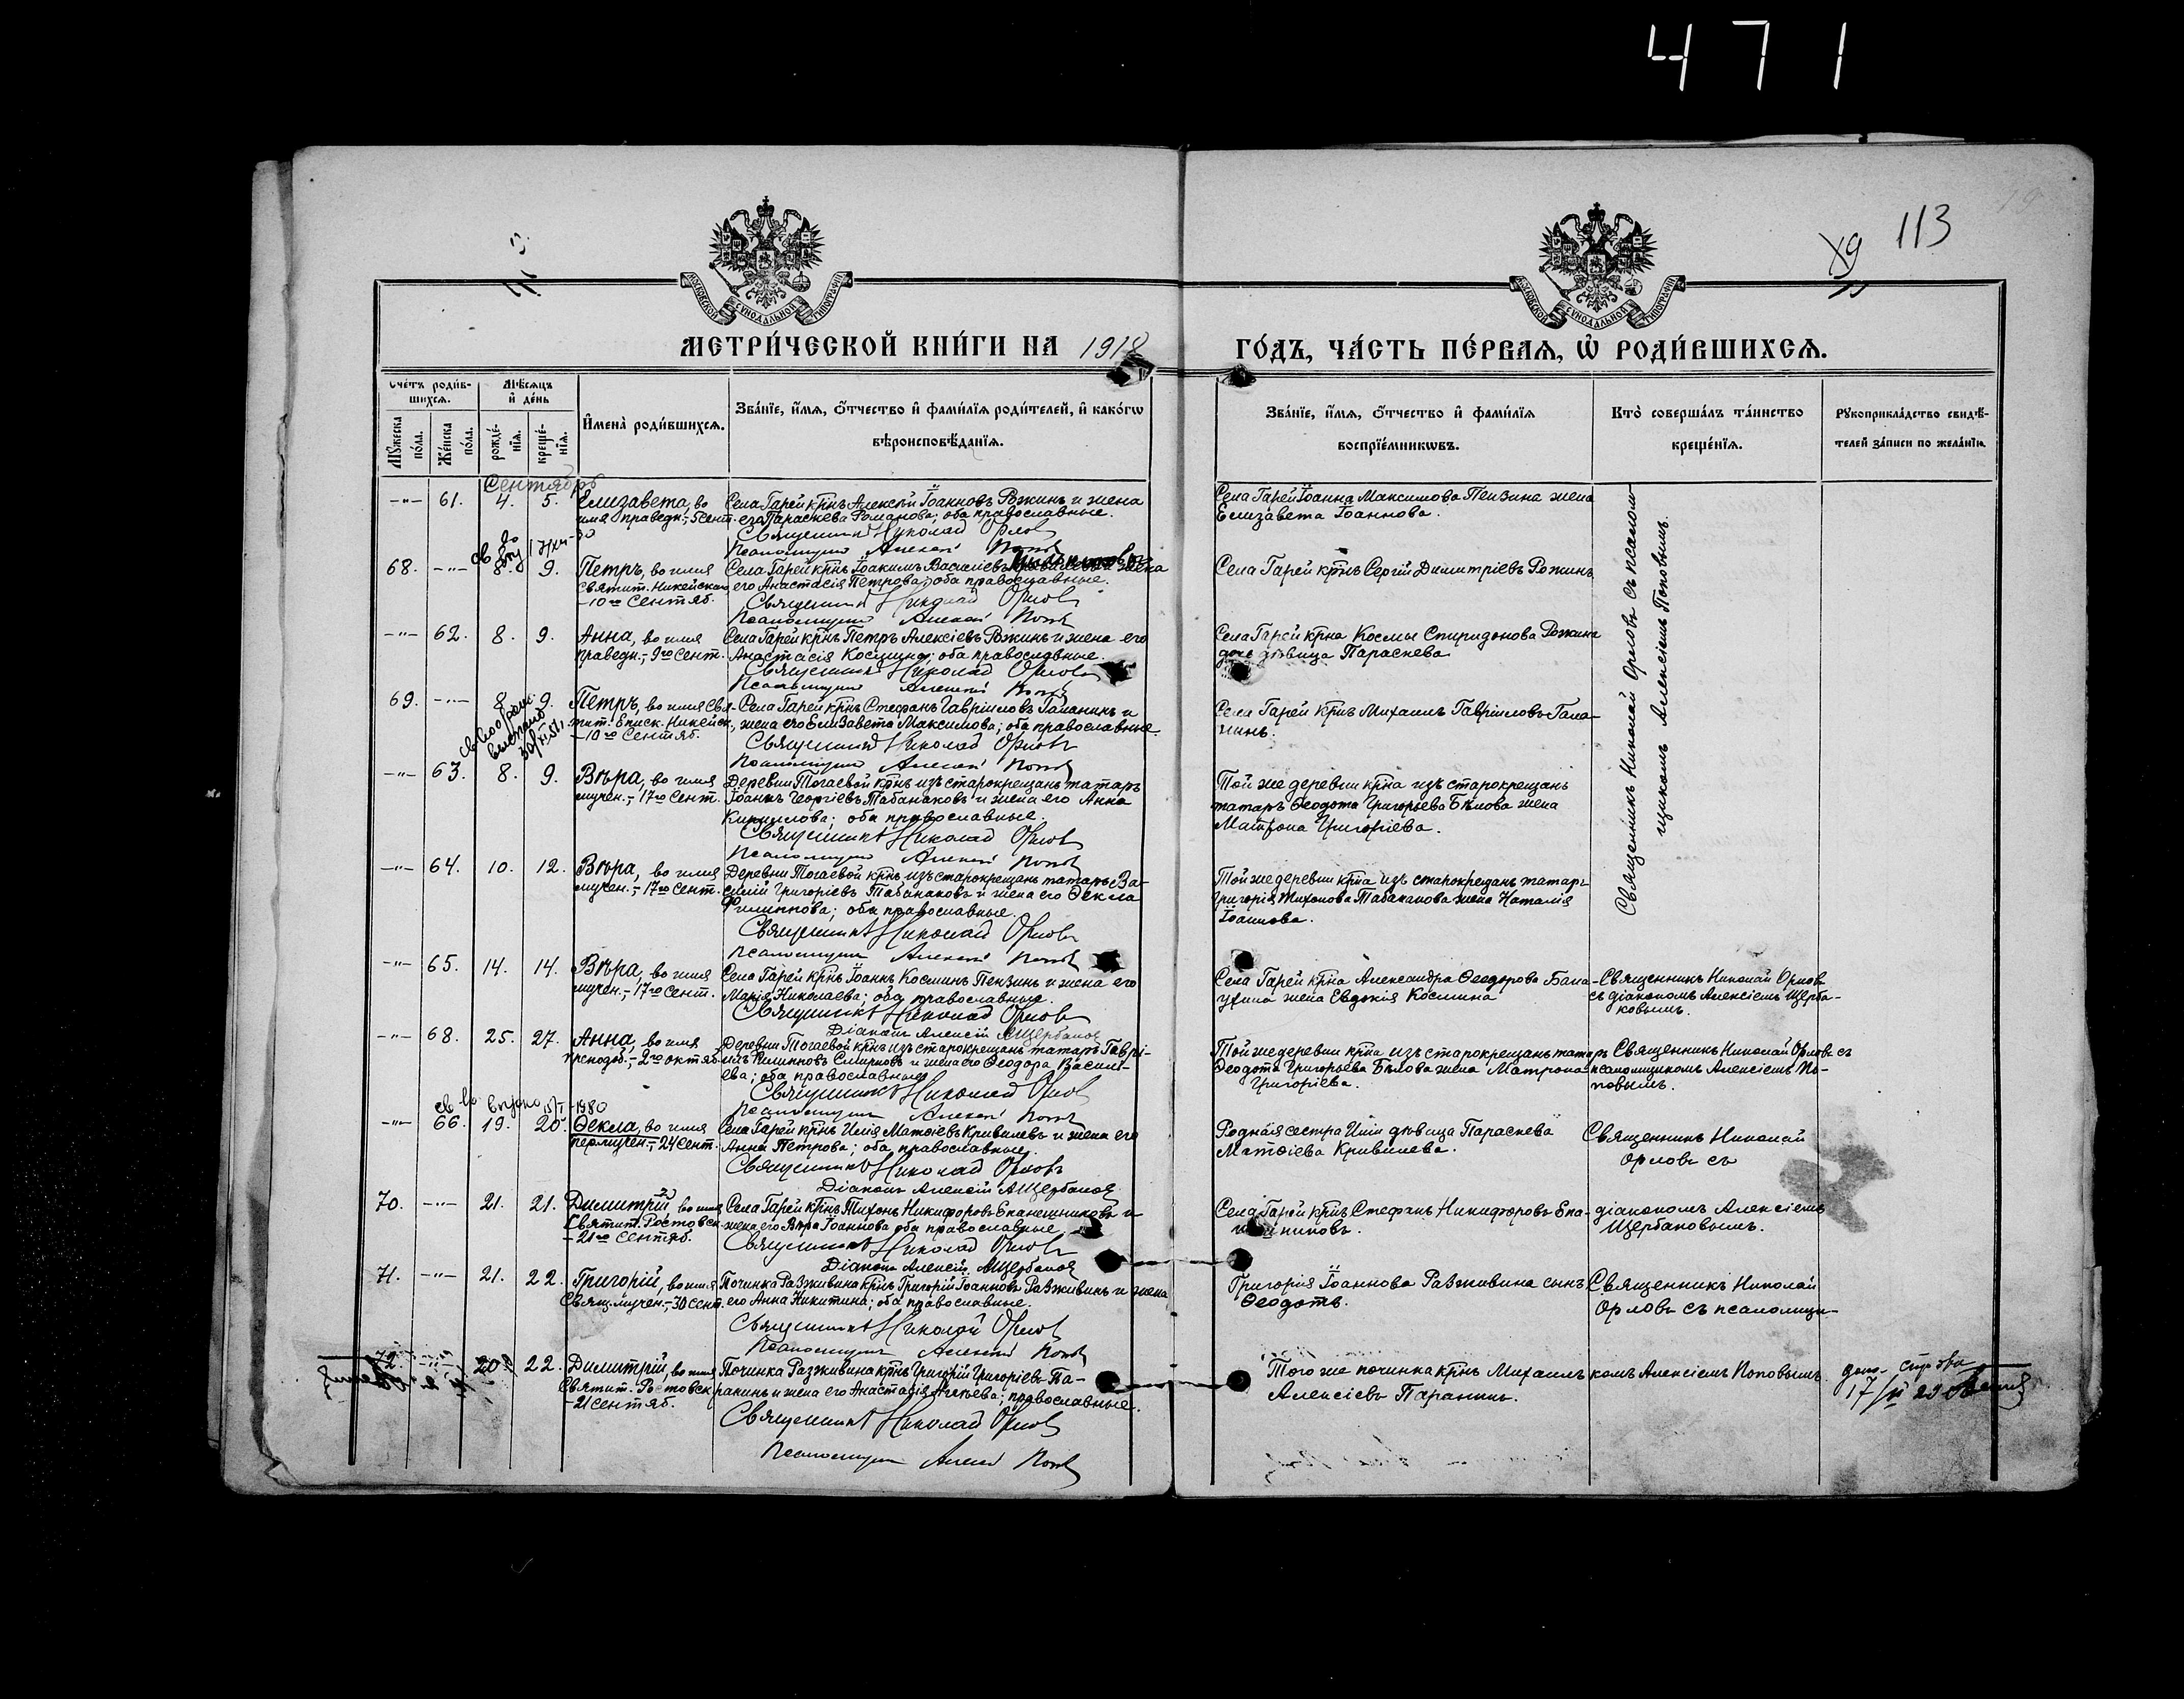 471
113
19
МОСКОВСКОЙ СѴНОДАЛЬНОЙ ТИПОГРАФІИ
МОСКОВСКОЙ СѴНОДАЛЬНОЙ ТИПОГРАФІИ
МЕТРИ́ЧЕСКОЙ КНИ́ГИ НА 1918
ГО́ДЪ, ЧА́СТЬ ПЕ́РВАЯ, Ѡ РОДИ́ВШИХСЯ.
Сче́тъ роди́вшихся.
Мужеска по́ла.
Же́нска по́ла.
Мѣ́сяцъ и де́нь
рожде́нія.
креще́нія.
Имена̀ роди́вшихся.
Зва́ніе, и́мя, о́тчество и фами́лія роди́телей, и како́гѡ
вѣроисповѣ́данія.
Зва́ніе, и́мя, о́тчество и фами́лія
воспріе́мникѡвъ.
Кто̀ соверша́лъ та́инство
креще́нія.
Рукоприкла́дство свидѣ́-
телей за́писи по жела́нію.
Сентябрь
-"- 61. 4. 5. Елизавета, во
имя праведн.,- 5 сент.
Села Гарей кр҃нъ Алексѣй Іоанновъ Рожинъ и жена
его Параскева Романова; оба православные.
Священникъ Николай Орловъ
Псаломщикъ Алексѣй Поповъ
Села Гарей Іоанна Максимова Пензина жена
Елизавета Іоаннова.
68. -"- 8. 9. Петръ, во имя
святит. Никейскаго
- 10го Сентяб.
Села Гарей кр҃нъ Іоакимъ Василіевъ и жена
его Анастасія Петрова; оба православные.
Священникъ Николай Орловъ
Псаломщикъ Алексѣй Поповъ
Села Гарей кр҃нъ Сергій Димитріевъ Рожинъ.
-"- 62. 8. 9. Анна, во имя
праведн.,- 9го сент.
Села Гарей кр҃нъ Петръ Алексіевъ Рожинъ и жена его
Анастасія Космина; оба православные.
Священникъ Николай Орловъ
Псаломщикъ Алексѣй Поповъ
Села Гарей кр҃на Космы Спиридонова Рожина
дочь дѣвица Параскева
69. -"- 8. 9. Петръ, во имя Свя-
тит. Еписк. Никейск.,
- 10го Сентяб.
Села Гарей кр҃нъ Стефанъ Гавріиловъ Галанинъ и
жена его Елизавета Максимова; оба православные.
Священникъ Николай Орловъ
Псаломщикъ Алексѣй Поповъ
Села Гарей кр҃нъ Михаилъ Гавріиловъ Гала-
нинъ.
-"- 63. 8. 9. Вѣра, во имя
мучен.,- 17го Сент.
Деревни Тогаевой кр҃нъ изъ старокрещенъ татаръ
Іоаннъ Георгіевъ Табанаковъ и жена его Анна
Кириллова; оба православные.
Священникъ Николай Орловъ
Псаломщикъ Алексѣй Поповъ
Той же деревни кр҃на изъ старокрещенъ
татаръ Ѳеодота Григорьева Бѣлова жена
Матрона Григоріева.
-"- 64. 10. 12. Вѣра, во имя
мучен.,- 17го Сент.
Деревни Тогаевой кр҃нъ изъ старокрещенъ татаръ Ва-
силій Григоріевъ Табанаковъ и жена его Ѳекла
Филиппова; оба православные.
Священникъ Николай Орловъ
Псаломщикъ Алексѣй Поповъ
Той же деревни кр҃на изъ старокрещенъ татаръ
Григорія Тихонова Табанакова жена Наталія
Іоаннова.
Священникъ Николай Орловъ съ псалом-
щикомъ Алексіемъ Поповымъ.
-"- 65. 14. 14. Вѣра, во имя
мучен.,- 17го Сент.
Села Гарей кр҃нъ Іоаннъ Косминъ Пензинъ и жена его
Марія Николаева; оба православные.
Священникъ Николай Орловъ
Діаконъ Алексій Щербаковъ
Села Гарей кр҃на Александра Ѳеодорова
жена Евдокія Космина
Священникъ Николай Орловъ
съ діакономъ Алексіемъ Щерба-
ковымъ.
-"- 68. 25. 27. Анна, во имя
преподоб.,- 2го октяб.
Деревни Тогаевой кр҃нъ изъ старокрещенъ татаръ Гаврі-
илъ Филипповъ Смирновъ и жена его Ѳеодора Василі-
ева; оба православные
Священникъ Николай Орловъ
Псаломщикъ Алексѣй Поповъ
Той же деревни кр҃на изъ старокрещенъ татаръ
Ѳеодота Григорьева Бѣлова жена Матрона
Григоріева.
Священникъ Николай Орловъ съ
псаломщикомъ Алексіемъ По-
повымъ.
-"- 66. 19. 20. Ѳекла, во имя
первмучен.,- 24 сент.
Села Гарей кр҃нъ Илія Матѳіевъ Кривилевъ и жена его
Анна Петрова; оба православные.
Священникъ Николай Орловъ
Діаконъ Алексій Щербаковъ
Родная сестра Иліи дѣвица Параскева
Матѳіева Кривилева.
Священникъ Николай
Орловъ съ
70. -"- 21. 21. Димитрій, во имя
Святит. Ростовск.
- 21го Сентяб.
Села Гарей кр҃нъ Тихонъ Никифоровъ Епанешниковъ и
жена его Вѣра Іоаннова оба православные
Священникъ Николай Орловъ
Діаконъ Алексій Щербаковъ
Села Гарей кр҃нъ Стефанъ Никифоровъ Епа-
нешниковъ.
діакономъ Алексіемъ
Щербаковымъ.
71. -"- 21. 22. Григорій, во имя
Свящ. мучен.,- 30 сент.
Починка Разживина кр҃нъ Григорій Іоанновъ Разживинъ и жена
его Анна Никитина; оба православные.
Священникъ Николай Орловъ
Псаломщикъ Алексѣй Поповъ
Григорія Іоаннова Разживина сынъ
Ѳеодотъ.
Священникъ Николай
Орловъ съ псаломщи-
72. -"- 20. 22. Димитрій, во имя
Святит. Ростовск.
- 21 сентяб.
Починка Разживина кр҃нъ Григорій Григоріевъ Па-
ранинъ и жена его Анастасія; православные.
Священникъ Николай Орловъ
Псаломщикъ Алексѣй Поповъ
Того же починка кр҃нъ Михаилъ
Алексіевъ Паранинъ.
комъ Алексіемъ Поповымъ.